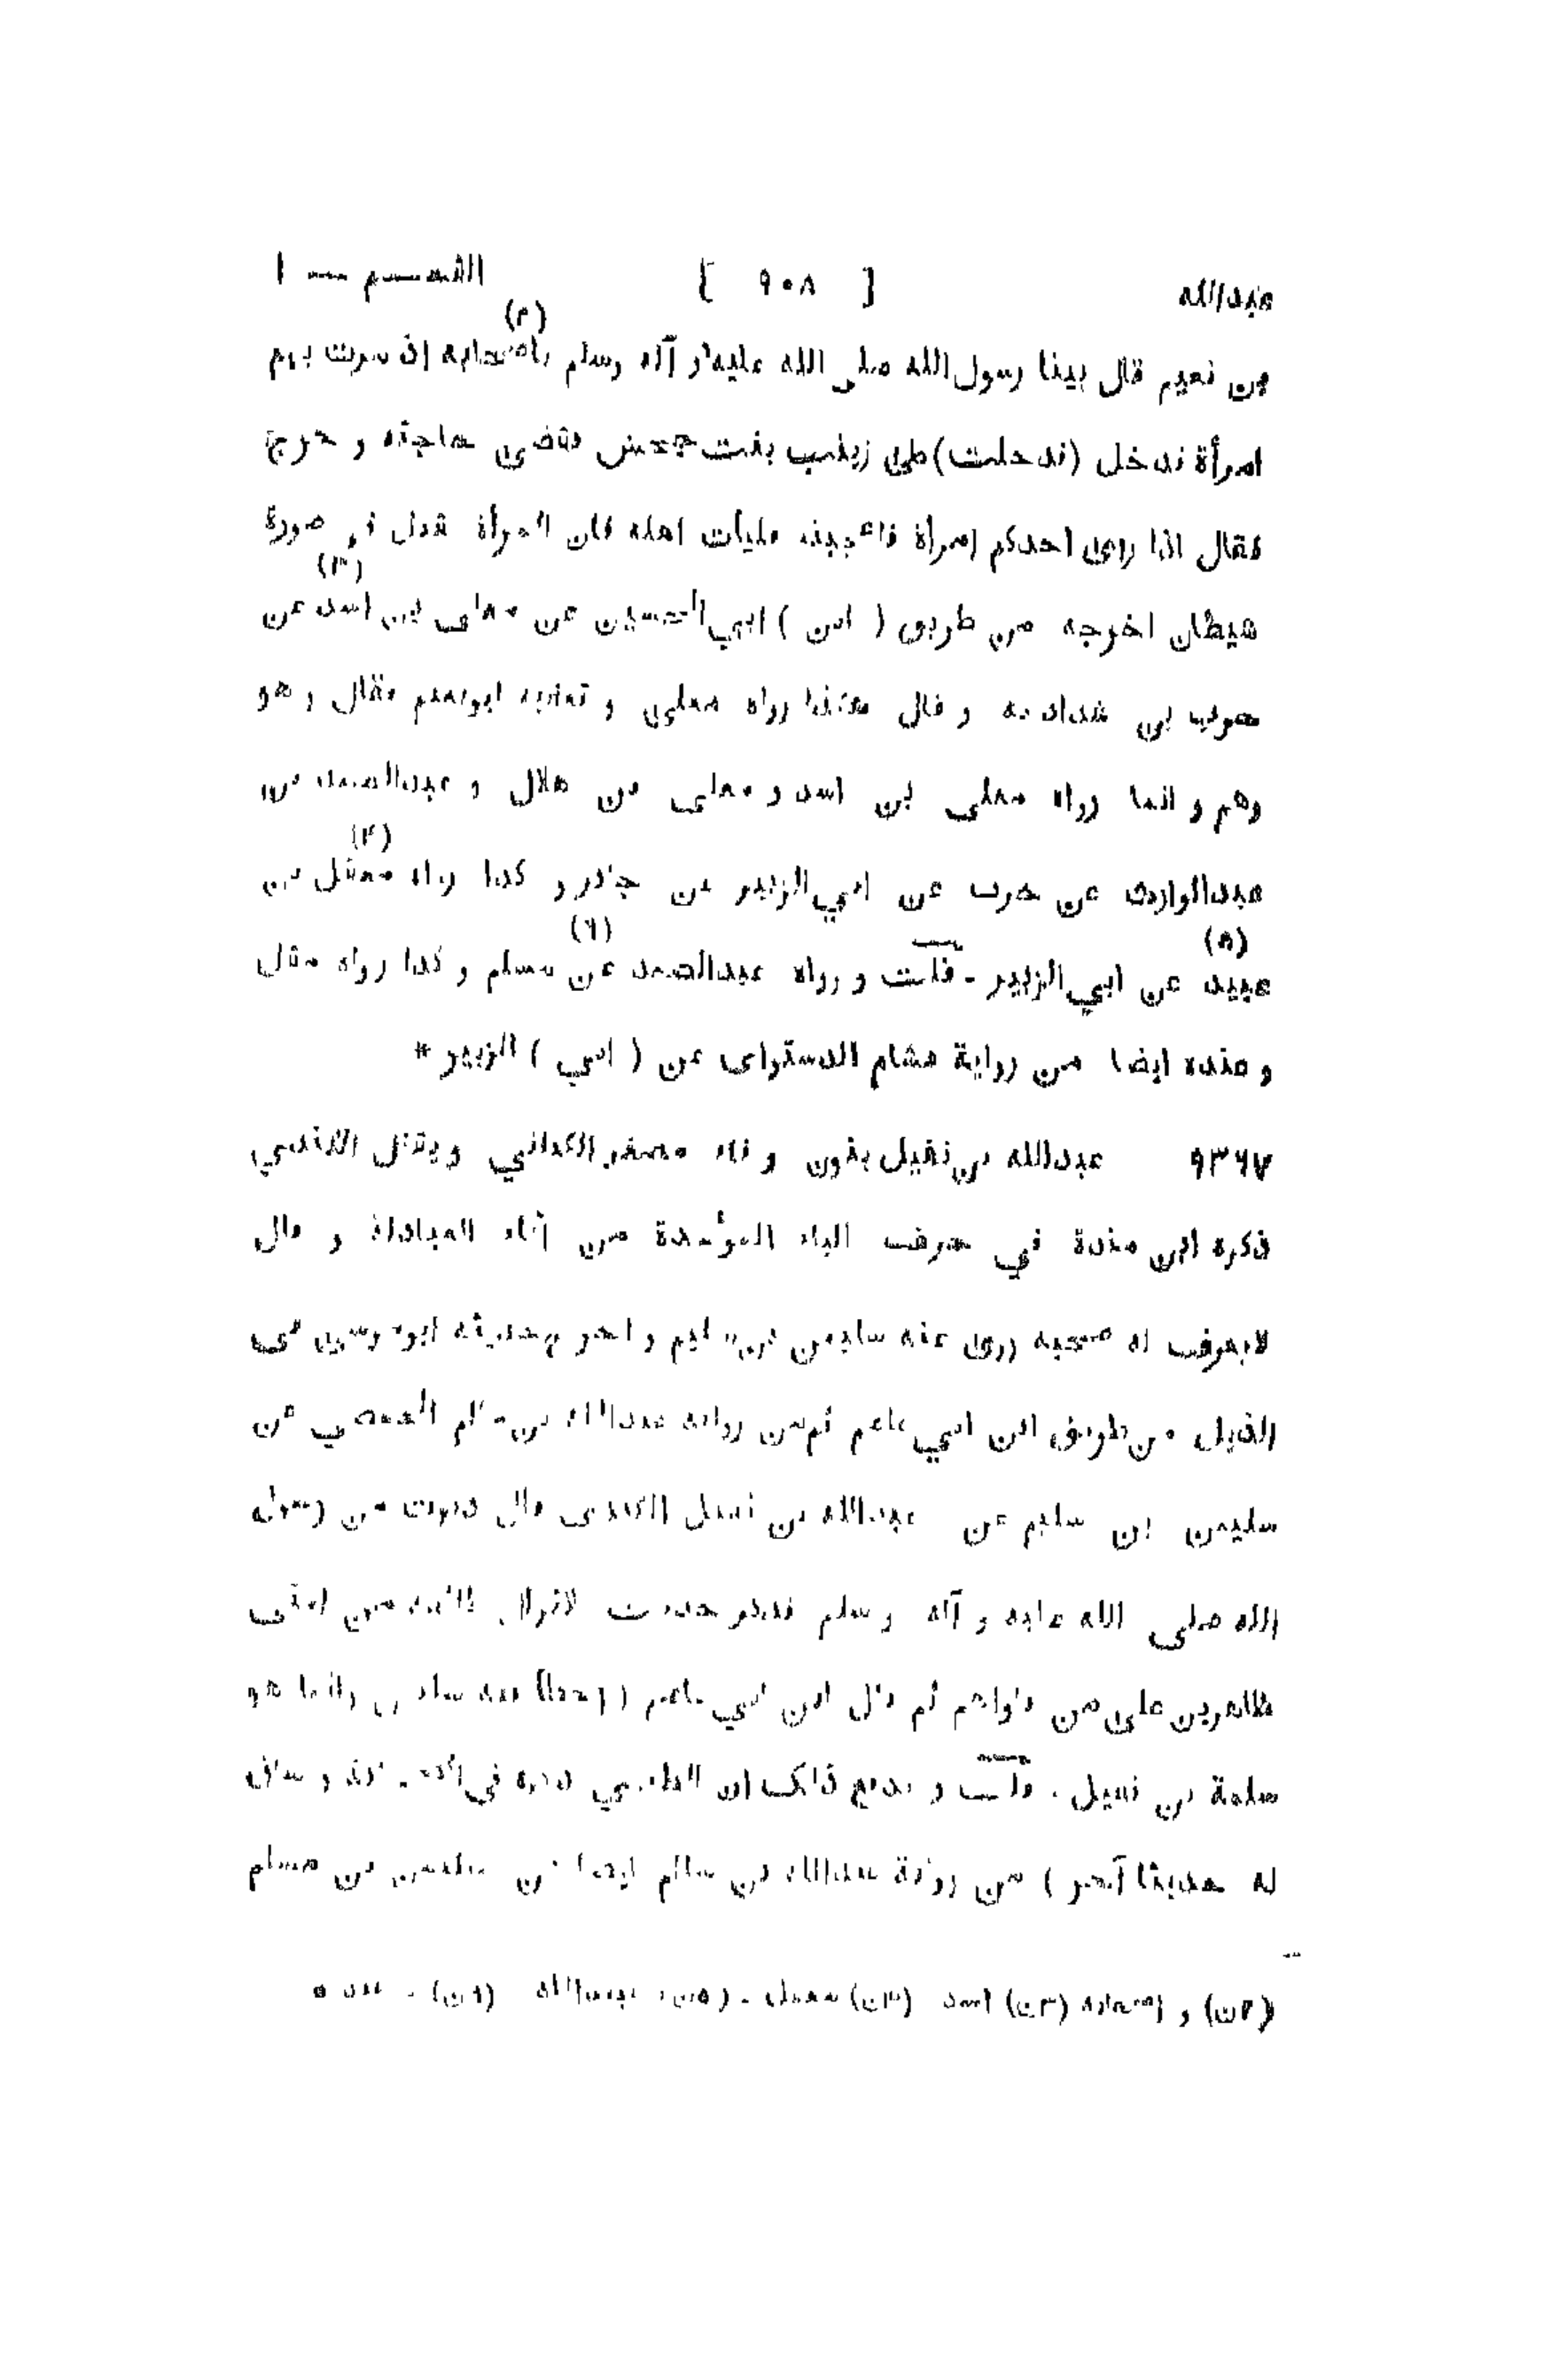 عبدالله [ ٩٠٨ ] القسم — ١
بن نعيم قال بينا رسول الله صلى الله عليه و آله وسلم باصحابه (٢) اذ مرت بهم
امرأة فدخل (فدخلت) على زينب بنت جحش فقضى حاجته و خرج
فقال اذا رأى احدكم امرأة فاعجبته فليأت اهله فان المرأة تقبل في صورة
شيطان اخرجه من طريق ( ابن ) ابي الحسين عن معلى بن اسد (٣) عن
حرب بن شداد به و قال هكذا رواه معلى و تعقبه ابونعيم فقال و هو
وهم و انما رواه معلى بن اسد و معلى بن هلال و عبدالصمد بن
عبدالوارث عن حرب عن ابي الزبير عن جابر و كذا رواه معقل (٤) بن
عبيد (٥) عن ابي الزبير - قلت و رواه عبدالصمد عن (٦) مسلم و كذا رواه معقل
و عنده ايضا من رواية هشام الدستوائى عن ( ابي ) الزبير *
٩٣٦٧ عبدالله بن نفيل بنون و فاء مصغر الكنانى و يقال الكندي
ذكره ابن مندة في حرف الباء الموحدة من آباء العبادلة و قال
لايعرف له صحبة روى عنه سليمن بن سليم و اخرج حديثه ابوموسى فى
الذيل من طريق ابن ابي عاصم ثم من رواية عبدالله بن سالم الحمصي عن
سليمن بن سليم عن عبدالله بن نفيل الكندى قال من رسول
الله صلى الله عليه و آله وسلم فذكر حديث لاتزال من امتى
ظاهرين على من ناواهم ثم قال ابن ابي عاصم اخطأ فيه و انما هو
سلمة بن نفيل . قلت و مع ذلك ان الطبراني في و ساق
له حديثا آخر ) من رواية عبدالله بن سالم ايضا عن سليمن بن مسلم
(٢ن) و اصحابه (٣ن) اسد (٤ن) معقل - (٥ن) عبدالله (٦ن) - عند *